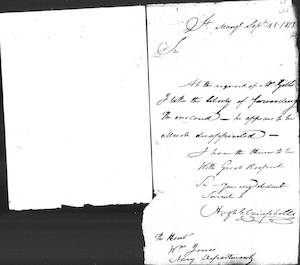 St Marys Sepr 15. 1813
Sir
At the request of Mr
I take the liberty of forwarding
the enclosed — he appears to be
Much disappointed —
I have the Honor to be
With Great Respect
Sir — Your obedient
Servant
Hugh G Campbell
The Honbl
Wm Jones
Navy Department